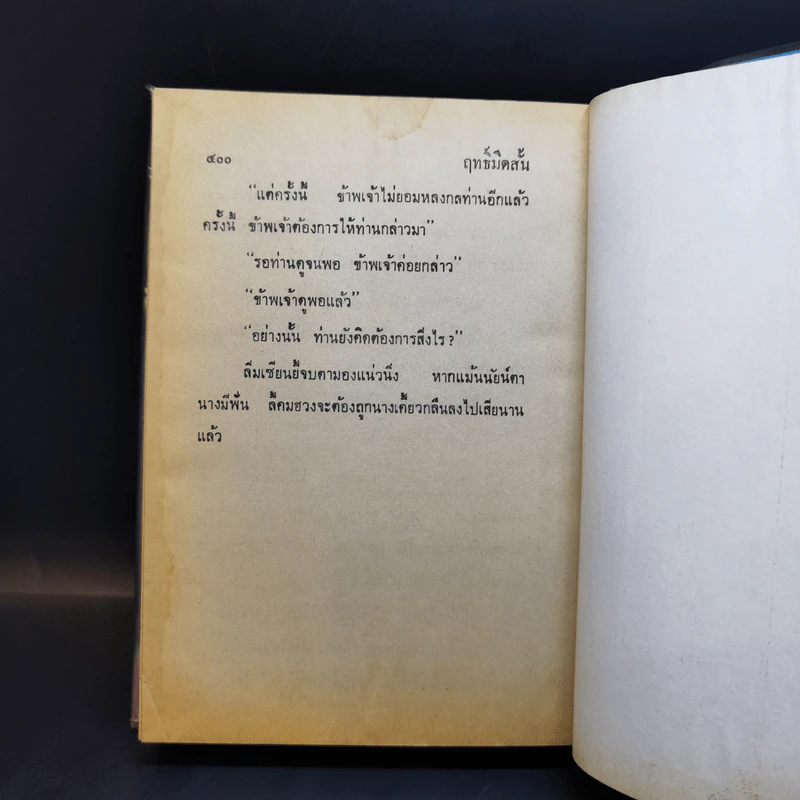 ๔๐๐ ฤทธิ์มีดสั้น
“แต่ครั้งนี้ ข้าพเจ้าไม่ยอมหลงกลท่านอีกแล้ว
ครั้งนี้ ข้าพเจ้าต้องการให้ท่านกล่าวมา”
“รอท่านดูจนพอ ข้าพเจ้าค่อยกล่าว”
“ข้าพเจ้าดูพอแล้ว”
“อย่างนั้น ท่านยังคิดต้องการสิ่งไร?”
ลิ่มเซียนยี้จบตามองแน่วนิ่ง หากแม้นนัยน์ตา
นางมีฟัน ลี้คิมฮวงจะต้องถูกนางเคี้ยวกลืนลงไปเสียนาน
แล้ว